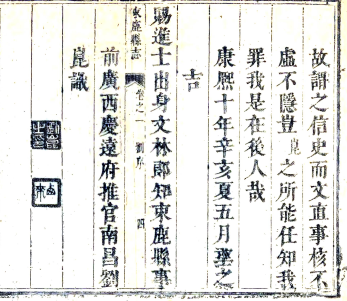 故謂之信史而文直事核不
虛不隱豈崑之所能任知我
罪我是在後人哉
康熙十年辛亥夏五月
吉
束鹿縣志 卷之一 劉序 四
賜進士出身文林郎知束鹿縣事
前廣西慶遠府推官南昌劉
崑識